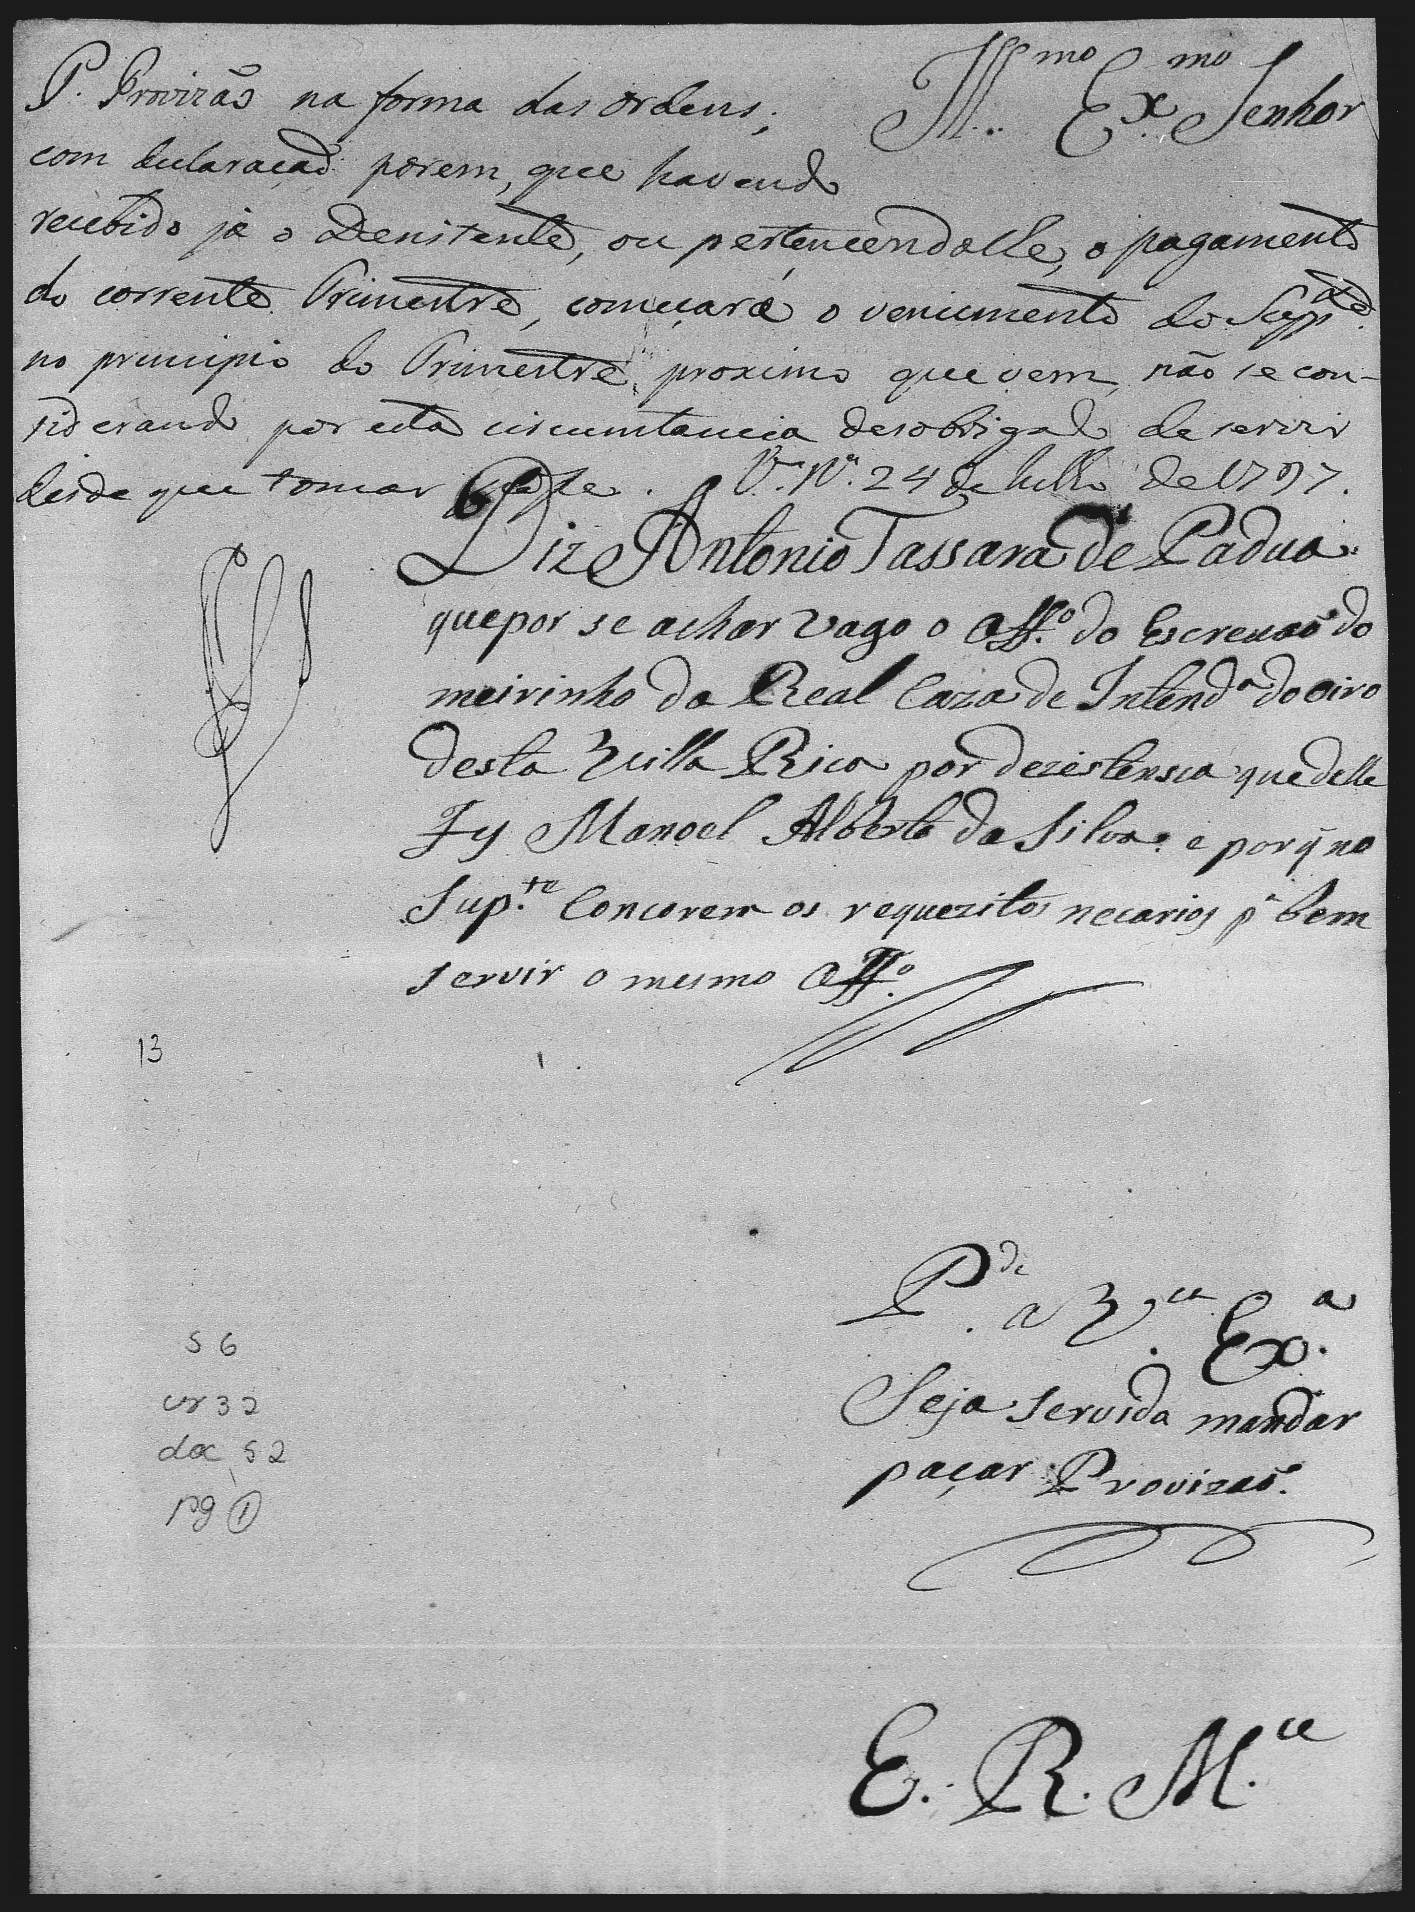 Ill.mo Ex.mo Senhor
P. Provizão na forma das ordens,
com declaração porem, que havendo
recebido já o Dezistente, ou pertencendolle, o pagamento
do corrente Trimestre, começará o vencimento do Supp.te
no principio do Trimestre proximo que vem, não se con-
siderando por esta circumstancia desobrigado de servir
desde que tomar posse. V.a R.a 24 de Julho de 1797.
Diz Antonio Tassara de Padua
que por se achar vago o Off.o do Escrevaõ do
meirinho da Real Caza de Intend.a do oiro
desta Villa Rica por dezistensia que delle
Fez Manoel Alberto da Silva. e por q̃ no
Sup.te Concorem os requezitos necarios p.a bem
servir o mesmo Off.o
13
P.de a V.ca Ex.a
Seja servida mandar
paçar Provizaõ.
56
cx 32
doc 52
pg 1
E. R. M.ce